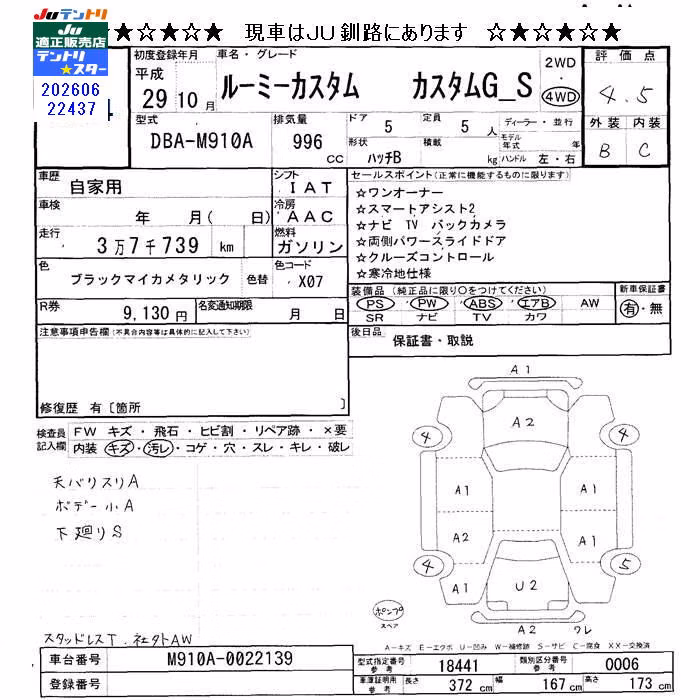 Juテントリ
Ju
適正販売店
テントリ
☆スター
202606
22437
★☆★☆★☆ 現車はJU釧路にあります ☆★☆★☆★
初度登録年月
平成
29 10 月
車名・グレード
ルーミーカスタム カスタムG_S
2WD
・
4WD
評価点
4.5
外装 内装
B C
型式
DBA-M910A
排気量
996
cc
ドア
5
形状
ハッチB
定員
5 人
積載
kg
ディーラー・並行
モデル
年式 年
ハンドル 左・右
車歴
自家用
シフト
IAT
車検
年 月( 日)
冷房
AAC
走行
3万7千739 km
燃料
ガソリン
色
ブラックマイカメタリック 色替
色コード
X07
R券
9,130円
名変通知期限
月 日
セールスポイント(正常に機能するものに限ります)
☆ワンオーナー
☆スマートアシスト2
☆ナビ TV バックカメラ
☆両側パワースライドドア
☆クルーズコントロール
☆寒冷地仕様
装備品(純正品に限り○をつけてください)
PS PW ABS エアB AW
SR ナビ TV カワ
新車保証書
有・無
後日品
保証書・取説
注意事項申告欄(不具合内容等は具体的に記入して下さい)
修復歴 有〔箇所 〕
検査員
記入欄
FW キズ・飛石・ヒビ割・リペア跡・×要
内装・キズ・汚レ・コゲ・穴・スレ・キレ・破レ
天バリスリA
ボデー小A
下廻りS
スタッドレスT. 社外AW
A1
A2
4
4
A1
A1
A2
A1
4
5
A1
U2
A1
A2 ワレ
ポンプ
スペア
A-キズ E-エクボ U-凹み W-補修跡 S-サビ C-腐食 XX-交換済
車台番号
M910A-0022139
登録番号
型式指定番号
参考
18441
類別区分番号
参考
0006
車庫証明用
参考
長さ 372 cm 幅 167 cm 高さ 173 cm